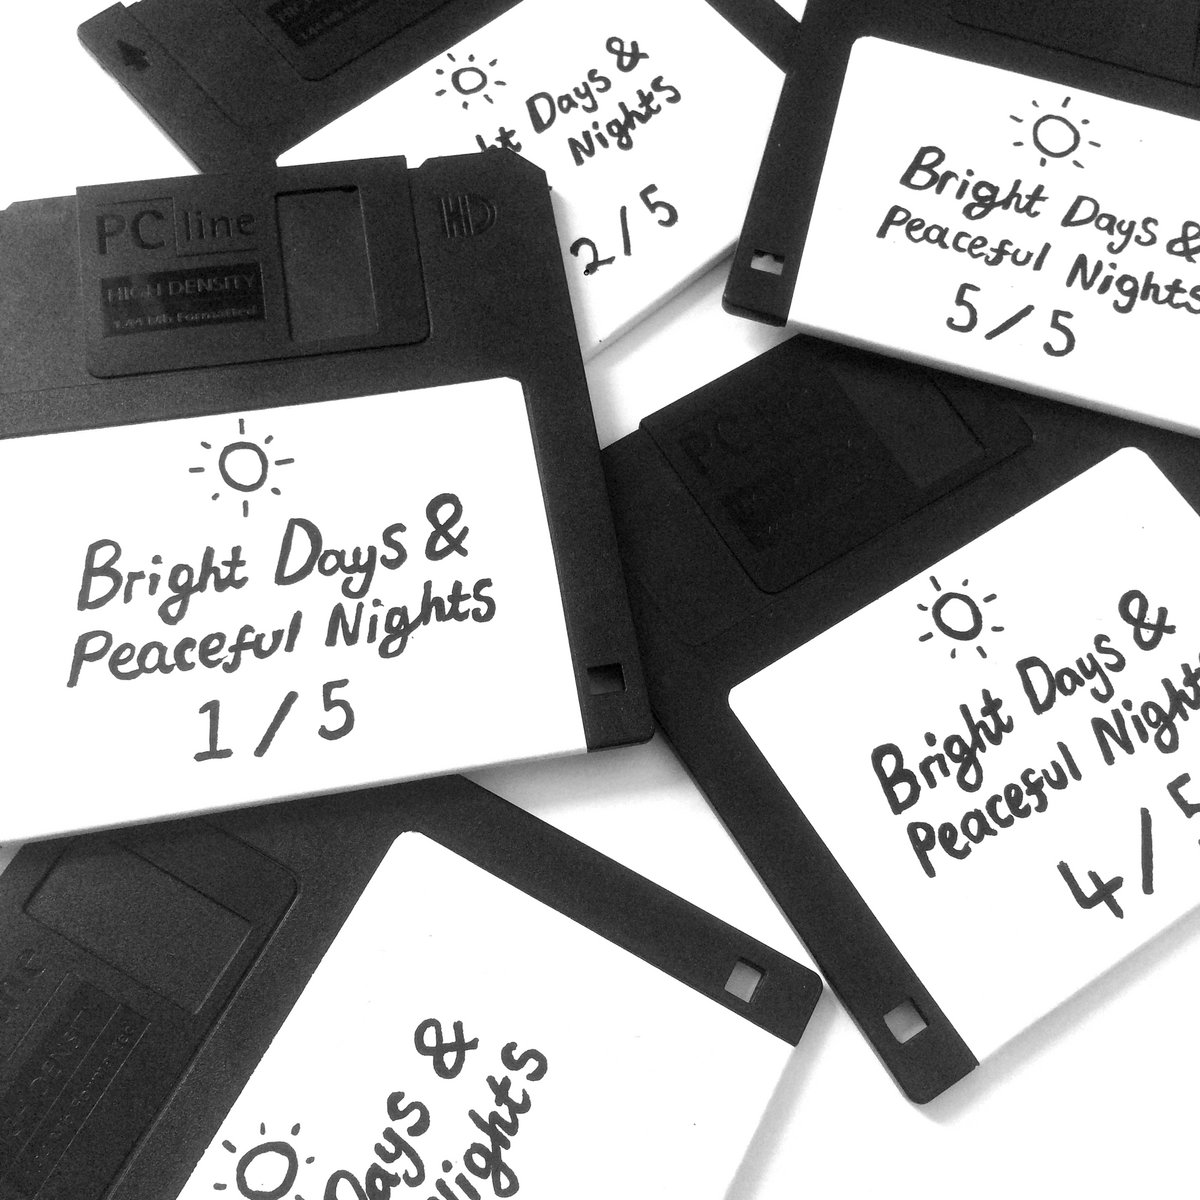 Days &
Nights
2/5
Bright Days &
Peaceful Nights
5/5
PC line
HIGH DENSITY
1.44 Mb Formatted
HD
Bright Days &
Peaceful Nights
1/5
PC
Bright Days &
Peaceful Nights
4/5
Days &
Nights